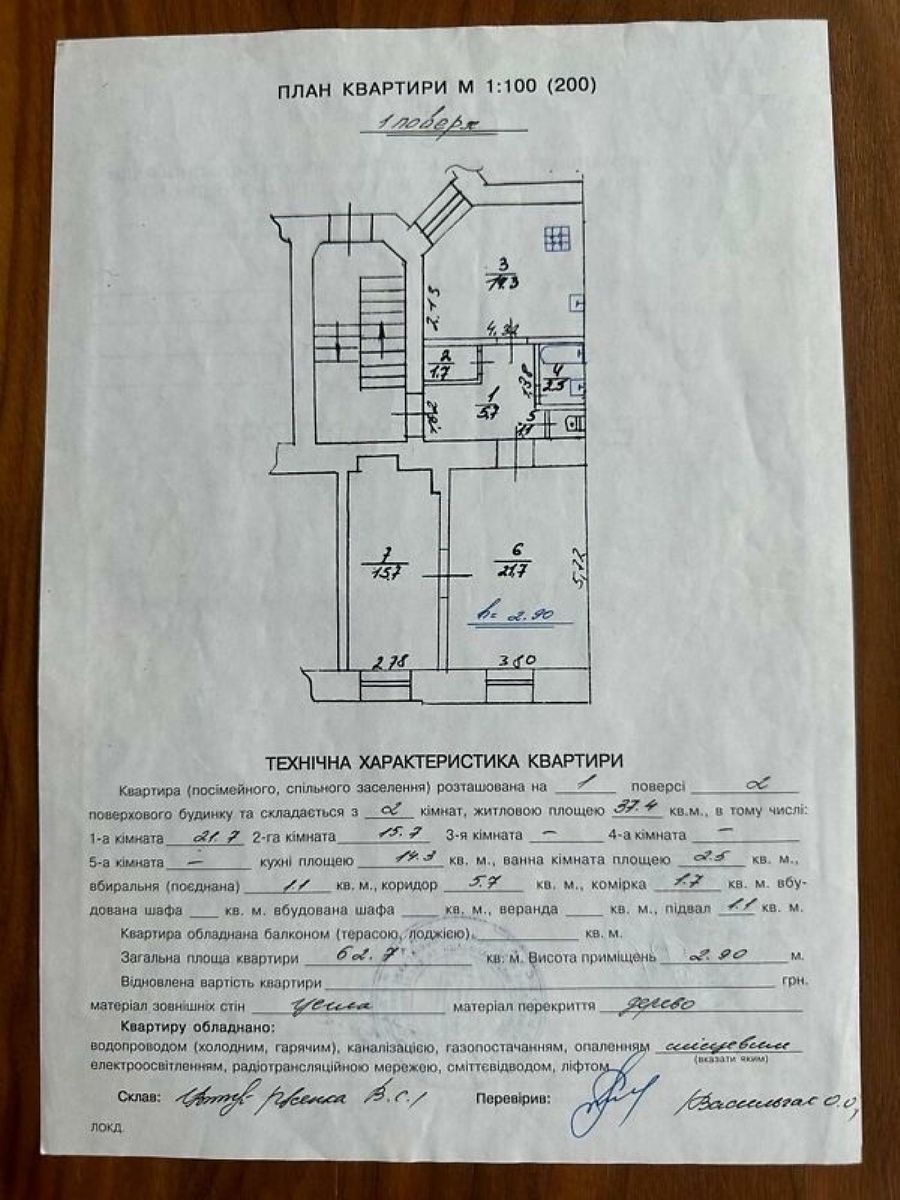 ПЛАН КВАРТИРИ М 1:100 (200)
1 поверх
3
14.3
2.13
4.32
2
1.7
1.38
4
2.5
1
5.7
1.82
5
1.1
7
15.7
6
21,7
5,72
h= 2.90
2.78
3.80
ТЕХНІЧНА ХАРАКТЕРИСТИКА КВАРТИРИ
Квартира (посімейного, спільного заселення) розташована на 1 поверсі 2
поверхового будинку та складається з 2 кімнат, житловою площею 37.4 кв.м., в тому числі:
1-а кімната 21.7 2-га кімната 15.7 3-я кімната – 4-а кімната –
5-а кімната – кухні площею 14.3 кв. м., ванна кімната площею 2.5 кв. м.,
вбиральня (поєднана) 1.1 кв. м., коридор 5.7 кв. м., комірка 1.7 кв. м. вбу-
дована шафа ___ кв. м. вбудована шафа ___ кв. м., веранда ___ кв. м., підвал 1.1 кв. м.
Квартира обладнана балконом (терасою, лоджією) ___ кв. м.
Загальна площа квартири 62.7 кв. м. Висота приміщень 2.90 м.
Відновлена вартість квартири ___ грн.
матеріал зовнішніх стін цегла матеріал перекриття дерево
Квартиру обладнано:
водопроводом (холодним, гарячим), каналізацією, газопостачанням, опаленням місцевим
(вказати яким)
електроосвітленням, радіотрансляційною мережею, сміттєвідводом, ліфтом
Склав: В.С. Перевірив: О.О.
ЛОКД.